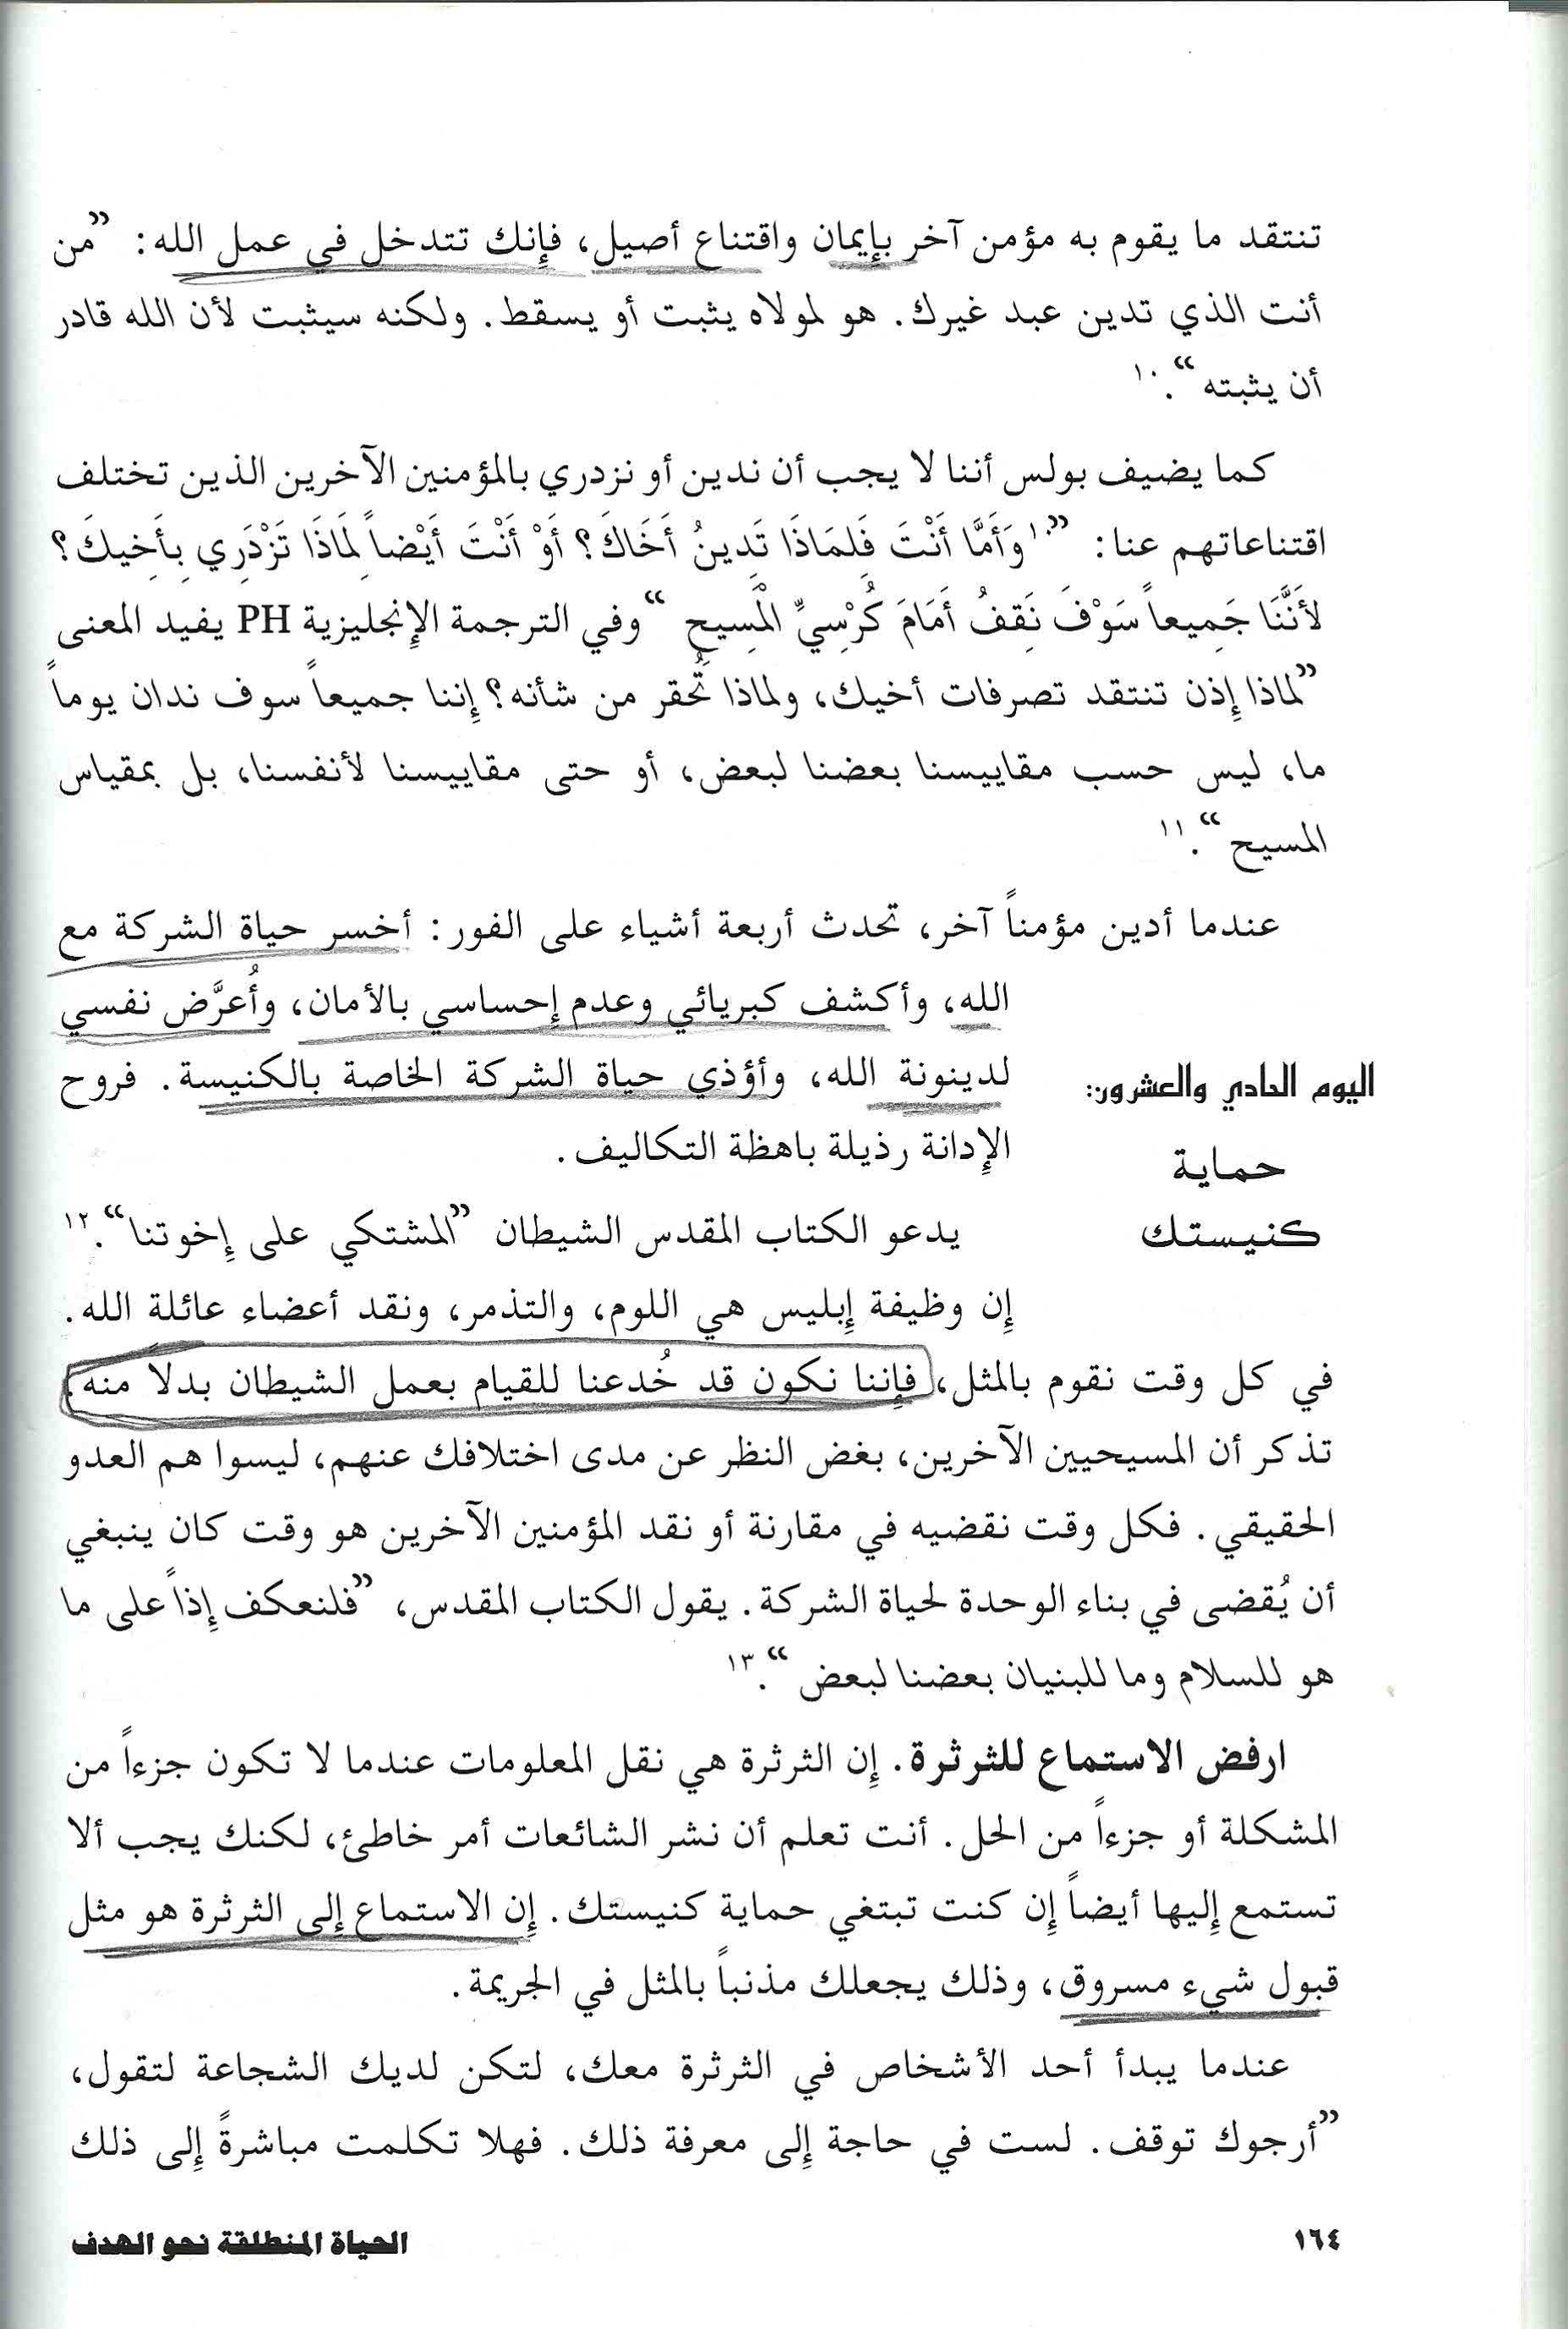 تنتقد ما يقوم به مؤمن آخر بإيمان واقتناع أصيل، فإنك تتدخل في عمل الله: ”من
أنت الذي تدين عبد غيرك. هو لمولاه يثبت أو يسقط. ولكنه سيثبت لأن الله قادر
أن يثبته“.١٠
كما يضيف بولس أننا لا يجب أن ندين أو نزدري بالمؤمنين الآخرين الذين تختلف
اقتناعاتهم عنا: ”١٠وَأَمَّا أَنْتَ فَلِمَاذَا تَدِينُ أَخَاكَ؟ أَوْ أَنْتَ أَيْضاً لِمَاذَا تَزْدَرِي بِأَخِيكَ؟
لأَنَّنَا جَمِيعاً سَوْفَ نَقِفُ أَمَامَ كُرْسِيِّ الْمَسِيحِ“ وفي الترجمة الإنجليزية PH يفيد المعنى
”لماذا إذن تنتقد تصرفات أخيك، ولماذا تُحقر من شأنه؟ إننا جميعاً سوف ندان يوماً
ما، ليس حسب مقاييسنا بعضنا لبعض، أو حتى مقاييسنا لأنفسنا، بل بمقياس
المسيح“.١١
عندما أدين مؤمناً آخر، تحدث أربعة أشياء على الفور: أخسر حياة الشركة مع
الله، وأكشف كبريائي وعدم إحساسي بالأمان، وأُعرَّض نفسي
لدينونة الله، وأؤذي حياة الشركة الخاصة بالكنيسة. فروح
الإدانة رذيلة باهظة التكاليف.
اليوم الحادي والعشرون:
حماية
كنيستك
يدعو الكتاب المقدس الشيطان ”المشتكي على إخوتنا“.١٢
إن وظيفة إبليس هي اللوم، والتذمر، ونقد أعضاء عائلة الله.
في كل وقت نقوم بالمثل، فإننا نكون قد خُدعنا للقيام بعمل الشيطان بدلاً منه.
تذكر أن المسيحيين الآخرين، بغض النظر عن مدى اختلافك عنهم، ليسوا هم العدو
الحقيقي. فكل وقت نقضيه في مقارنة أو نقد المؤمنين الآخرين هو وقت كان ينبغي
أن يُقضى في بناء الوحدة لحياة الشركة. يقول الكتاب المقدس، ”فلنعكف إذاً على ما
هو للسلام وما للبنيان بعضنا لبعض“.١٣
ارفض الاستماع للثرثرة. إن الثرثرة هي نقل المعلومات عندما لا تكون جزءاً من
المشكلة أو جزءاً من الحل. أنت تعلم أن نشر الشائعات أمر خاطئ، لكنك يجب ألا
تستمع إليها أيضاً إن كنت تبتغي حماية كنيستك. إن الاستماع إلى الثرثرة هو مثل
قبول شيء مسروق، وذلك يجعلك مذنباً بالمثل في الجريمة.
عندما يبدأ أحد الأشخاص في الثرثرة معك، لتكن لديك الشجاعة لتقول،
”أرجوك توقف. لست في حاجة إلى معرفة ذلك. فهلا تكلمت مباشرةً إلى ذلك
١٦٤
الحياة المنطلقة نحو الهدف